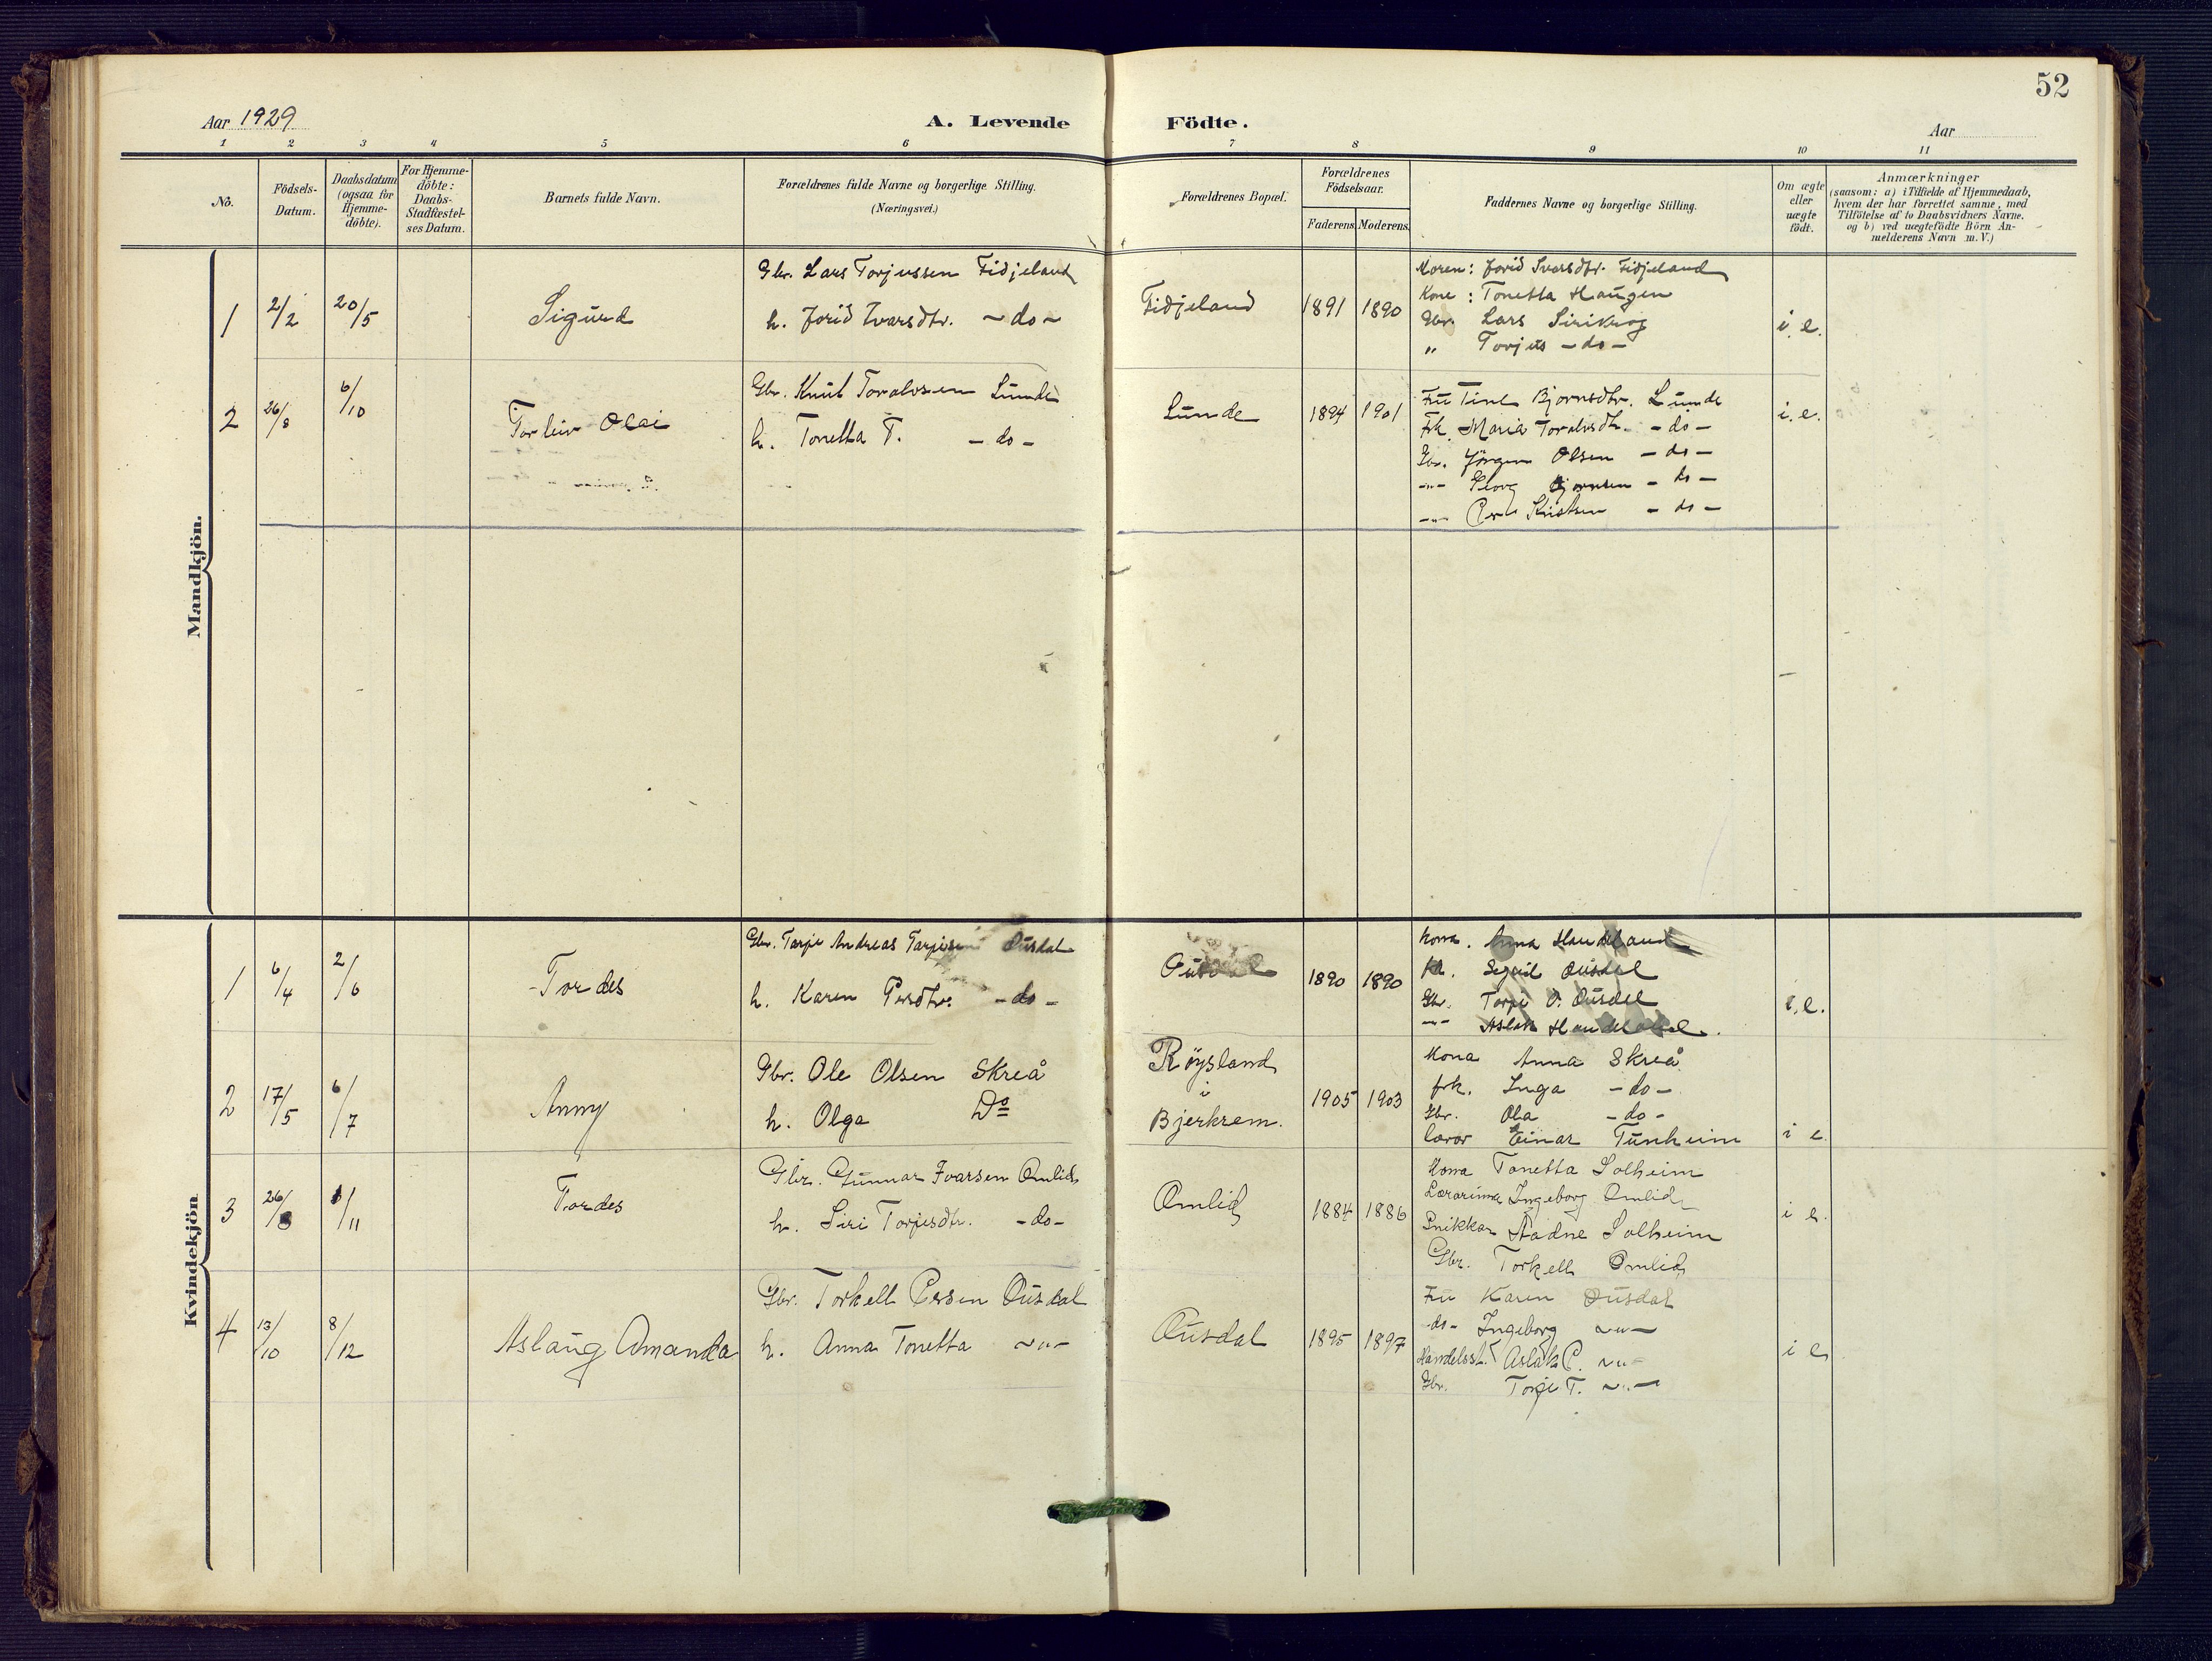 52
Aar 1929
A. Levende Födte.
Aar
1 2 3 4 5 6 7 8 9 10 11
No.
Födsels-Datum.
Daabsdatum (ogsaa for Hjemme-döbte).
For Hjemme-döbte: Daabs-Stadfæstel-ses Datum.
Barnets fulde Navn.
Forældrenes fulde Navne og borgerlige Stilling.
(Næringsvei.)
Forældrenes Bopæl.
Forældrenes Födselsaar.
Faderens. Moderens.
Faddernes Navne og borgerlige Stilling.
Om ægte eller uægte födt.
Anmærkninger
(saasom: a) i Tilfælde af Hjemmedaab,
hvem der har forrettet samme, med
Tilföielse af to Daabsvidners Navne.
og b) ved uægtefödte Börn An-
melderens Navn m. V.)
Mandkjön.
1 2/2 20/5 Sigurd
Gbr. Lars Torjussen Fidjeland
h. Jorid Ivarsdtr. - do -
Fidjeland 1891 1890
Moren: Jorid Ivarsdtr. Fidjeland
Kone: Tonetta Haugen
Gbr. Lars Sirikrog
" Torjus - do -
i. e.
2 26/8 6/10 Torleiv Olai
Gbr. Knut Toralvsen Lunde
h. Tonetta T. - do -
Lunde 1894 1901
Fru Tine Bjornsdtr. Lunde
Frk. Maria Toralvsdtr. - do -
Gbr. Jörgen Olsen - do -
-"- Georg Bjornsen - do -
-"- Kristsen - do -
i. e.
Kvindekjön
1 6/4 2/6 Tordes
Gbr. Tarje Andreas Tarjesen Ousdal
h. Karen Persdtr. - do -
Ousdal 1890 1890
Kona. Anna Haudeland
Sigrid Ousdal
Gbr. Torje O. Ousdal
-"- Aslak Haudeland.
i. e.
2 17/5 6/7 Anny
Gbr. Ole Olsen Skreå
h. Olga Do
Röysland
i
Bjerkrem.
1905 1903
Kona Anna Skreå
frk. Inga - do -
Gbr. Ola - do -
lærar Einar Tunheim
i e.
3 26/8 /11 Tordes
Gbr. Gunnar Ivarsen Omlid
h. Siri Torjesdtr. - do -
Omlid 1884 1886
Kona Tonetta Solheim
Lærarinna Ingeborg Omlid
Snikkar Ådne Solheim
Gbr. Torkell Omlid
i e.
4 13/10 8/12 Aslaug Amanda
Gbr. Torkell Persen Ousdal
h. Anna Tonetta -"-
Ousdal 1895 1897
Fru Karen Ousdal
-do- Ingeborg -"-
Handelsst. Aslak P. -"-
Gbr. Torje T. -"-
i e